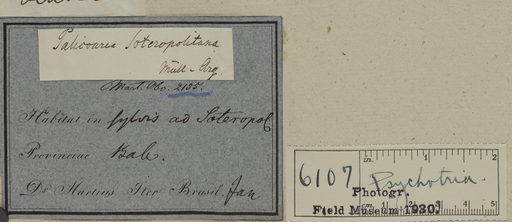 Palicourea Soteropolitana
Müll-Arg.
Mart. Obs. 2155.
Habitat in sylvis ad Soteropol
Provinciae Bah.
Dr Martius Iter Brasil. Jan
6107
Psychotria
Photogr.
Field Museum 1930.
in.
1
2
cm
1
2
3
4
5